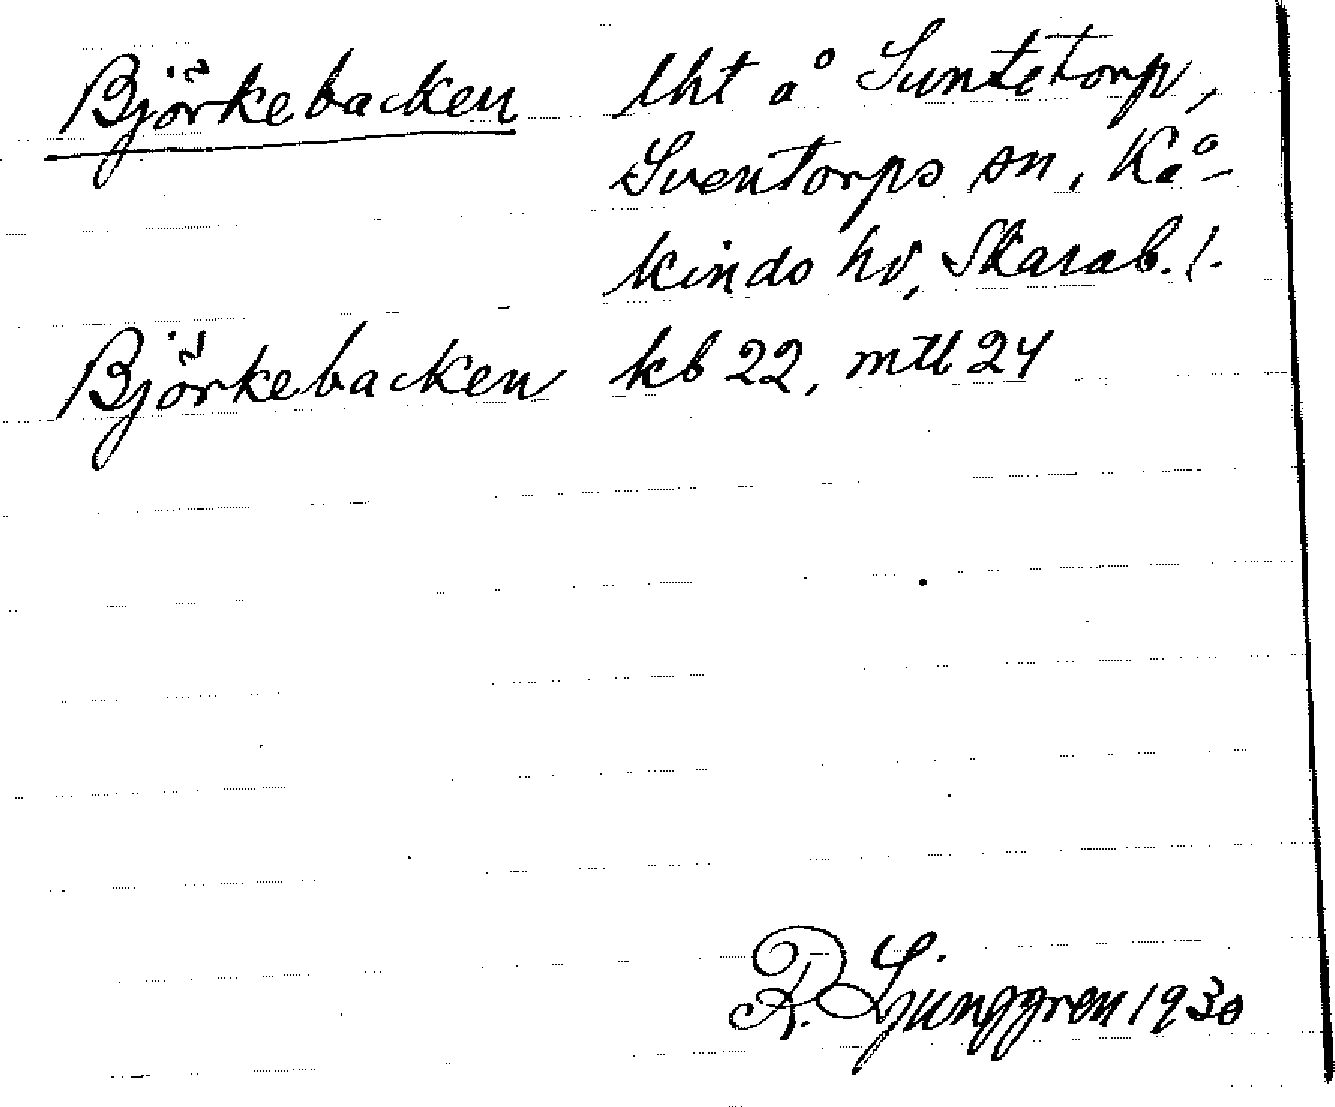 Björkebacken lht å Suntetorp,
Sventorps sn, Kå-
kinds hd, Skarab. l.
Björkebacken kb 22, mtl 24
R. Ljunggren 1930